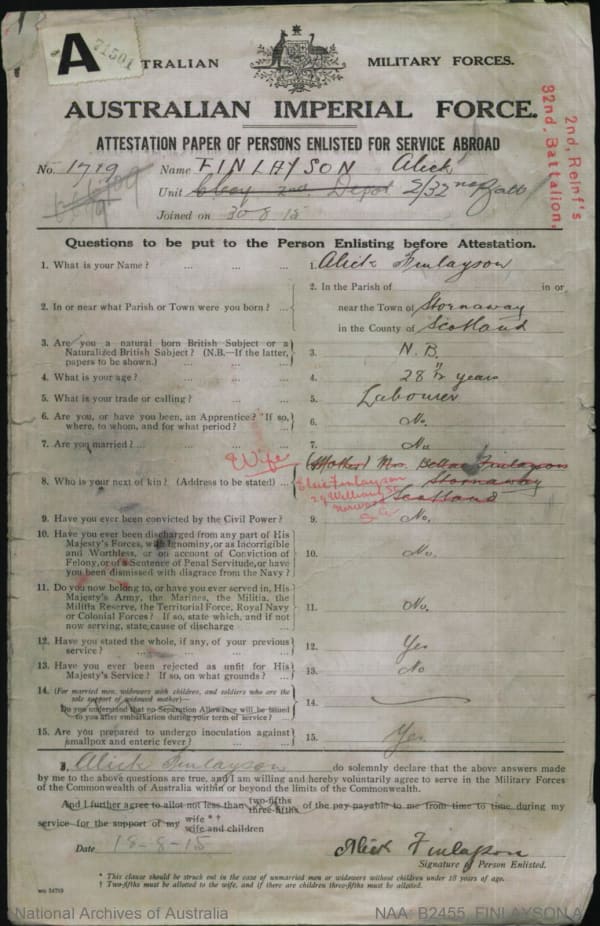 A
71501
AUSTRALIAN MILITARY FORCES.
AUSTRALIAN IMPERIAL FORCE.
ATTESTATION PAPER OF PERSONS ENLISTED FOR SERVICE ABROAD
2nd. Reinf's
32nd. Battalion.
No. 1779 Name FINLAYSON Alick
Unit 2nd Depot 2/32nd Batt
Joined on 30 8 15
Questions to be put to the Person Enlisting before Attestation.
1. What is your Name? ... ... ... 1. Alick Finlayson
2. In or near what Parish or Town were you born? ... 2. In the Parish of in or
near the Town of Stornaway
in the County of Scotland
3. Are you a natural born British Subject or a
Naturalized British Subject? (N.B.—If the latter,
papers to be shown.) ... ... 3. N.B.
4. What is your age? ... ... ... 4. 28 years
5. What is your trade or calling? ... ... 5. Labourer
6. Are you, or have you been, an Apprentice? If so,
where, to whom, and for what period? ... ... 6. No.
7. Are you married? ... ... ... 7. No
Wife (Mother) Mrs. Finlayson
8. Who is your next of kin? (Address to be stated) ... 8. Elsie Finlayson Stornaway
24 William St Scotland
Norwood
S.A.
9. Have you ever been convicted by the Civil Power? 9. No.
10. Have you ever been discharged from any part of His
Majesty's Forces, with Ignominy, or as Incorrigible
and Worthless, or on account of Conviction of
Felony, or of a Sentence of Penal Servitude, or have
you been dismissed with disgrace from the Navy? 10. No.
11. Do you now belong to, or have you ever served in, His
Majesty's Army, the Marines, the Militia, the
Militia Reserve, the Territorial Force, Royal Navy
or Colonial Forces? If so, state which, and if not
now serving, state cause of discharge ... 11. No.
12. Have you stated the whole, if any, of your previous
service? ... ... ... 12. Yes
13. Have you ever been rejected as unfit for His
Majesty's Service? If so, on what grounds? ... 13. No
14. (For married men, widowers with children, and soldiers who are the
sole support of widowed mother)—
Do you understand that no Separation Allowance will be issued
to you after embarkation during your term of service? ... 14.
15. Are you prepared to undergo inoculation against
smallpox and enteric fever? ... ... 15. Yes
I, Alick Finlayson do solemnly declare that the above answers made
by me to the above questions are true, and I am willing and hereby voluntarily agree to serve in the Military Forces
of the Commonwealth of Australia within or beyond the limits of the Commonwealth.
And I further agree to allot not less than two-fifths three-fifths of the pay payable to me from time to time during my
service for the support of my wife * † wife and children
Date 18-8-15 Alick Finlayson
Signature of Person Enlisted.
* This clause should be struck out in the case of unmarried men or widowers without children under 18 years of age.
† Two-fifths must be allotted to the wife, and if there are children three-fifths must be allotted.
National Archives of Australia NAA: B2455, FINLAYSON A